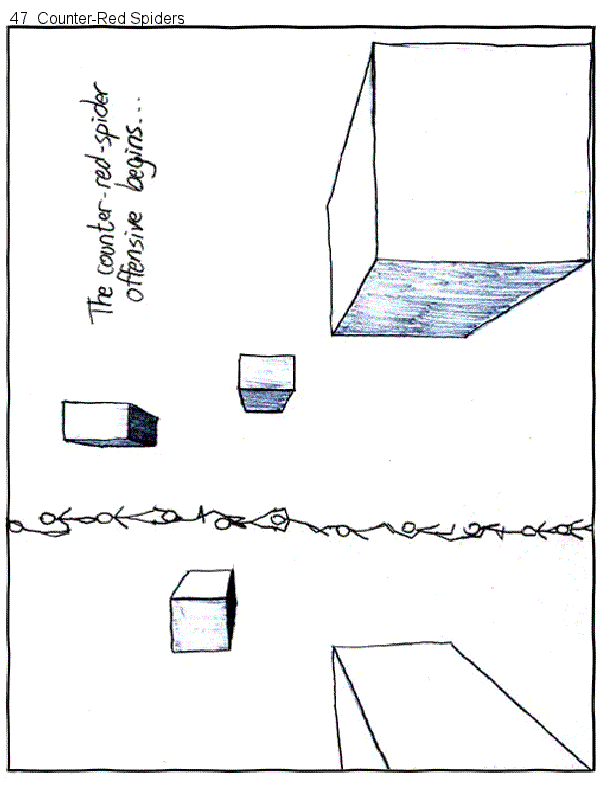 47 Counter-Red Spiders
The counter-red-spider
offensive begins...